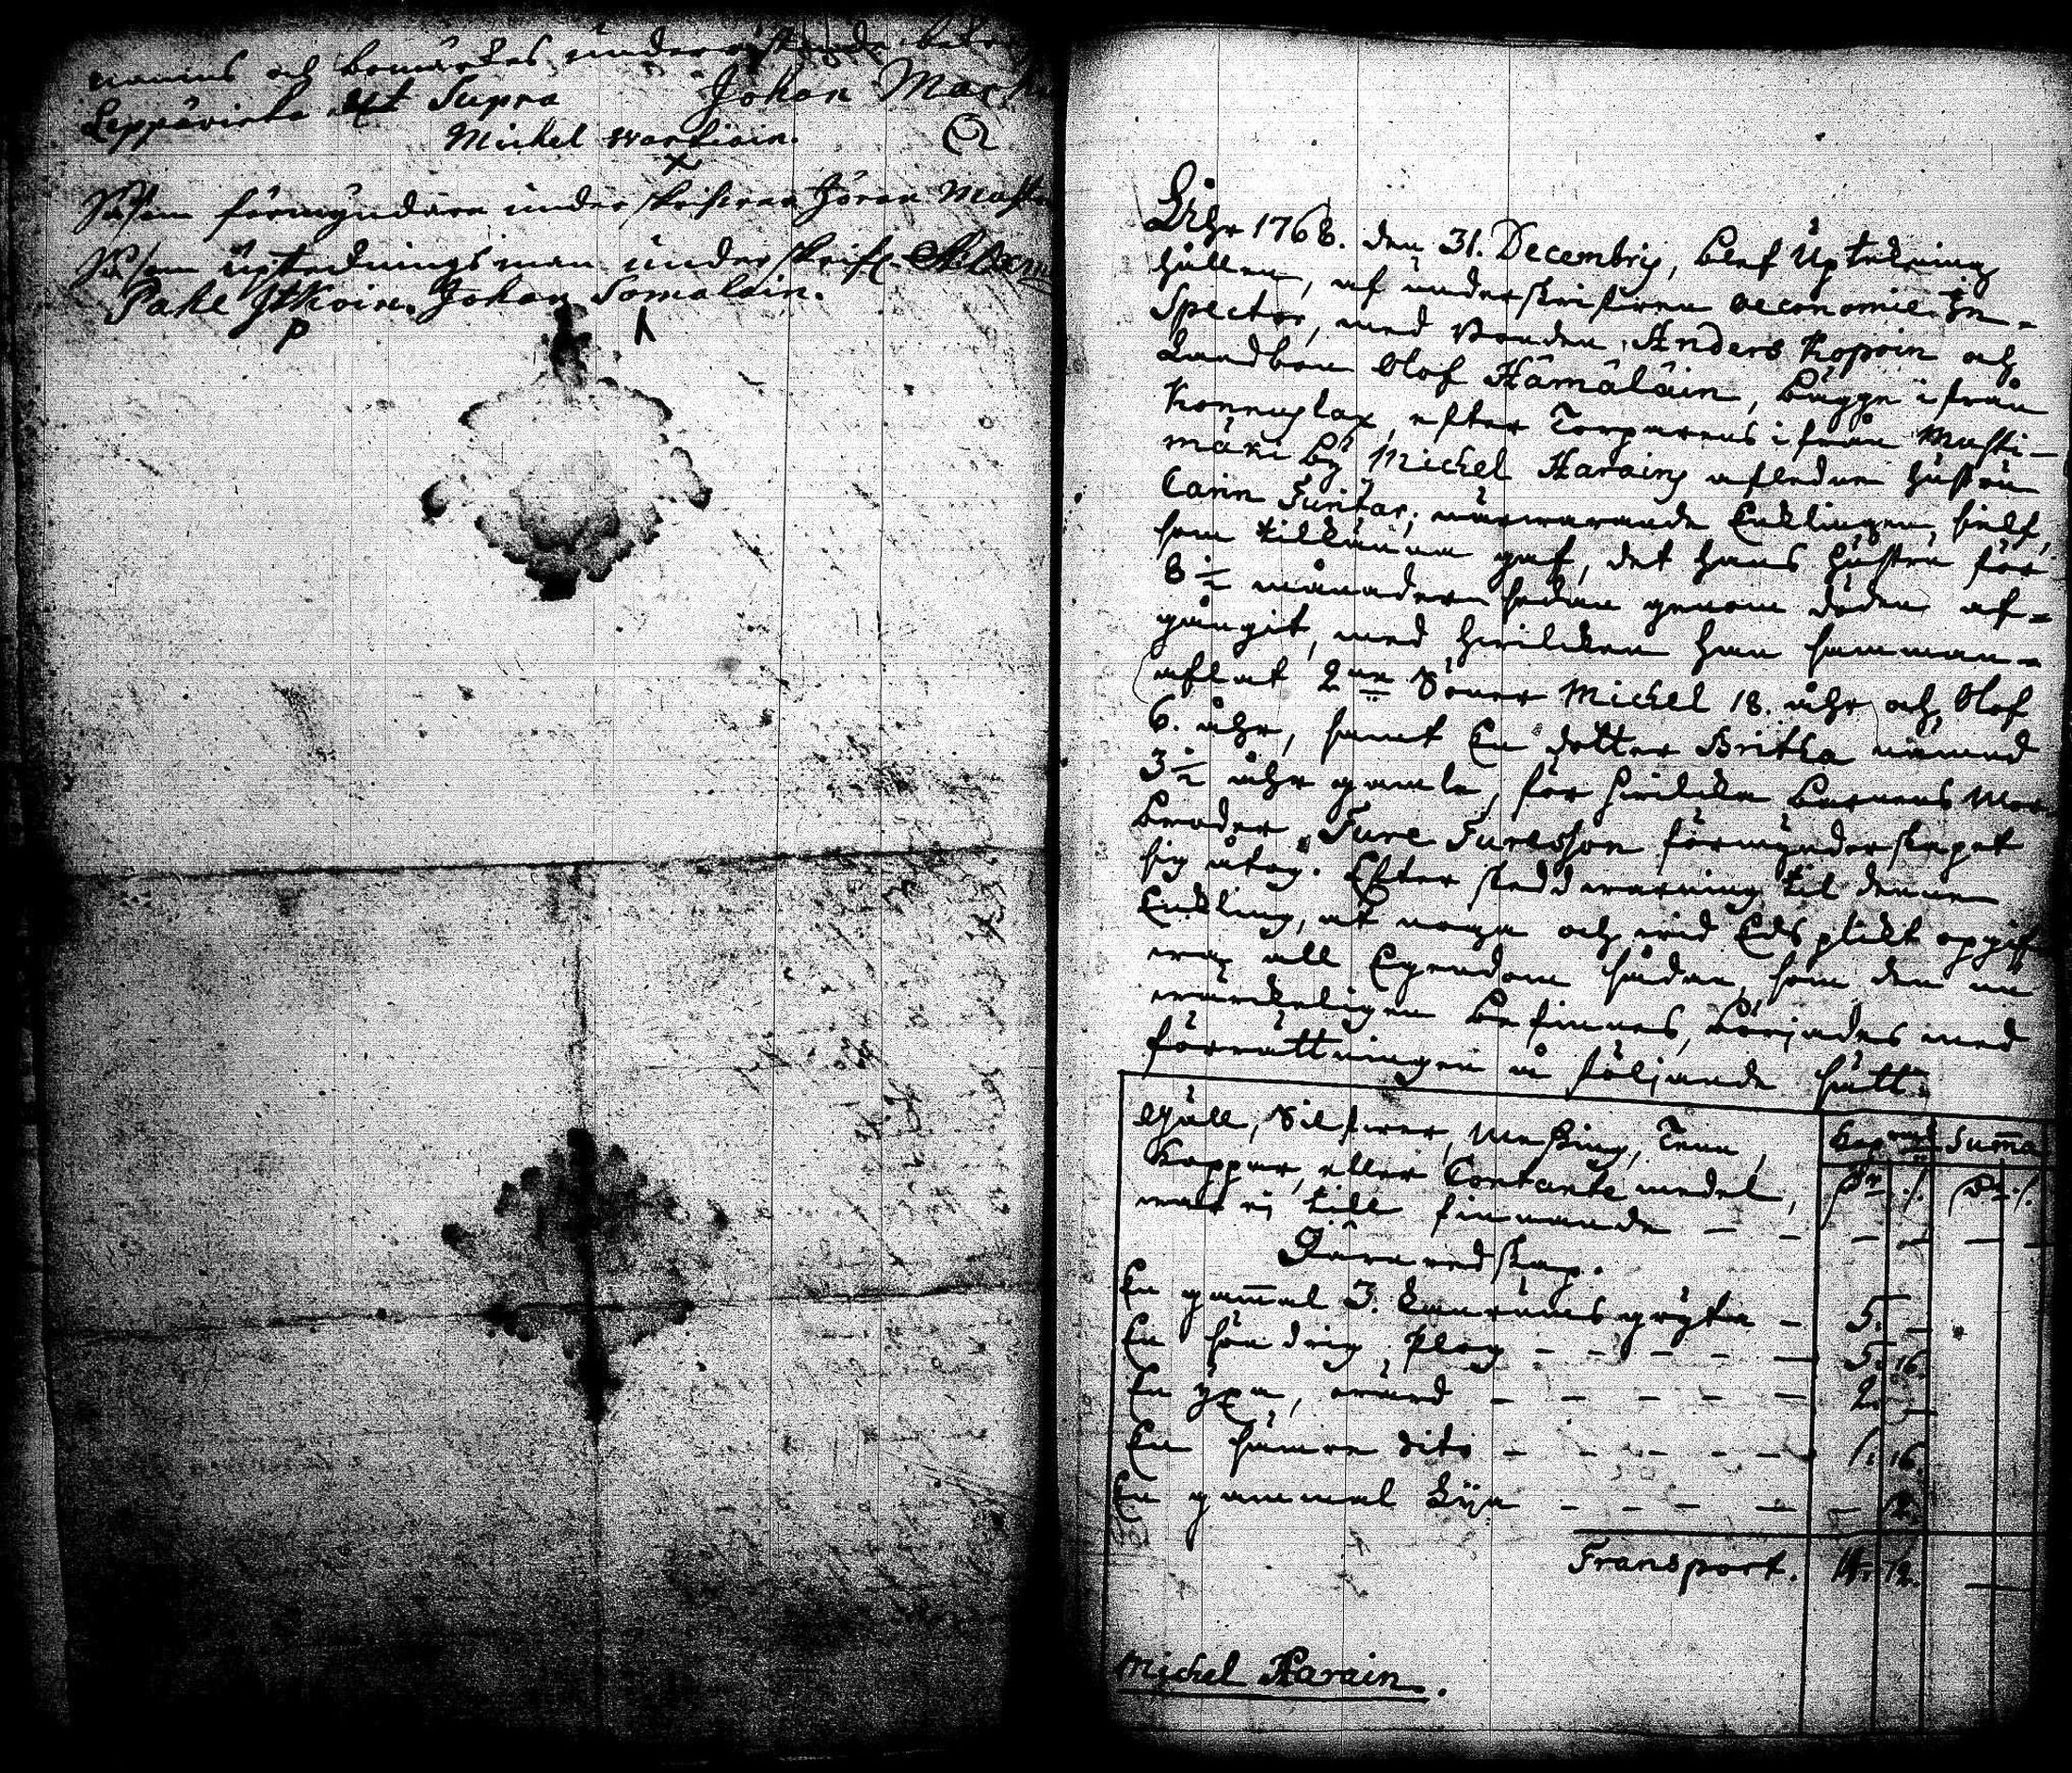 namns och bomärkes undersättande
Leppävirta Ut Supra Johan
Michel Wartiain.
Såsom förmyndare underskrifver Jöran
Såsom Uptecknings man underskrifr
Pahl Itkoin. Johan Tomalain.
Åhr 1768. den 31. Decembris, blef Uptekning
hållen, af underskrifven oeconomie In-
Spector, med Bonden Anders Kopoin och
Landbon Olof Hämäläin, bägge ifrån
Konnuslax, efter Torparens ifrån Musti-
mäki by Michel Harains afledne hustru
Carin Turitar; närvarande Enklingen sielf,
som tilkänna gaf, det hans hustru för
8 1/2 månader sedan genom döden af-
gångit, med hvilcken han samman-
aflat 2ne Söner Michel 18. åhr och Olof
6. åhr, samt En dotter Britha nämnd
3 1/2 åhr gamla, för hvilcka barnens Mor
broder Ture Turesson förmynderskapet
sig åtog. Efter skedd varning til denne
Enkling, at noga och vid Eds plikt opgif
va all Egendom sådan, som den nu
wärckeligen befinnes, börjades med
förrättningen på följande sätt.
Gull, Silfver, Messing, Tenn, Summa
Koppar, eller Contante medel,
war ej till finnande - - - -
Järnredskap.
En gammal 3. kannrums gryta - 5. -
En sönd rig Plog - - - - - 5. 16.
En yxa, - - - - - 2. -
En sämre dito - - - - - 1. 16.
En gammal Lija - - - - - - 2.
Transport. 14. 12.
Michel Harain.